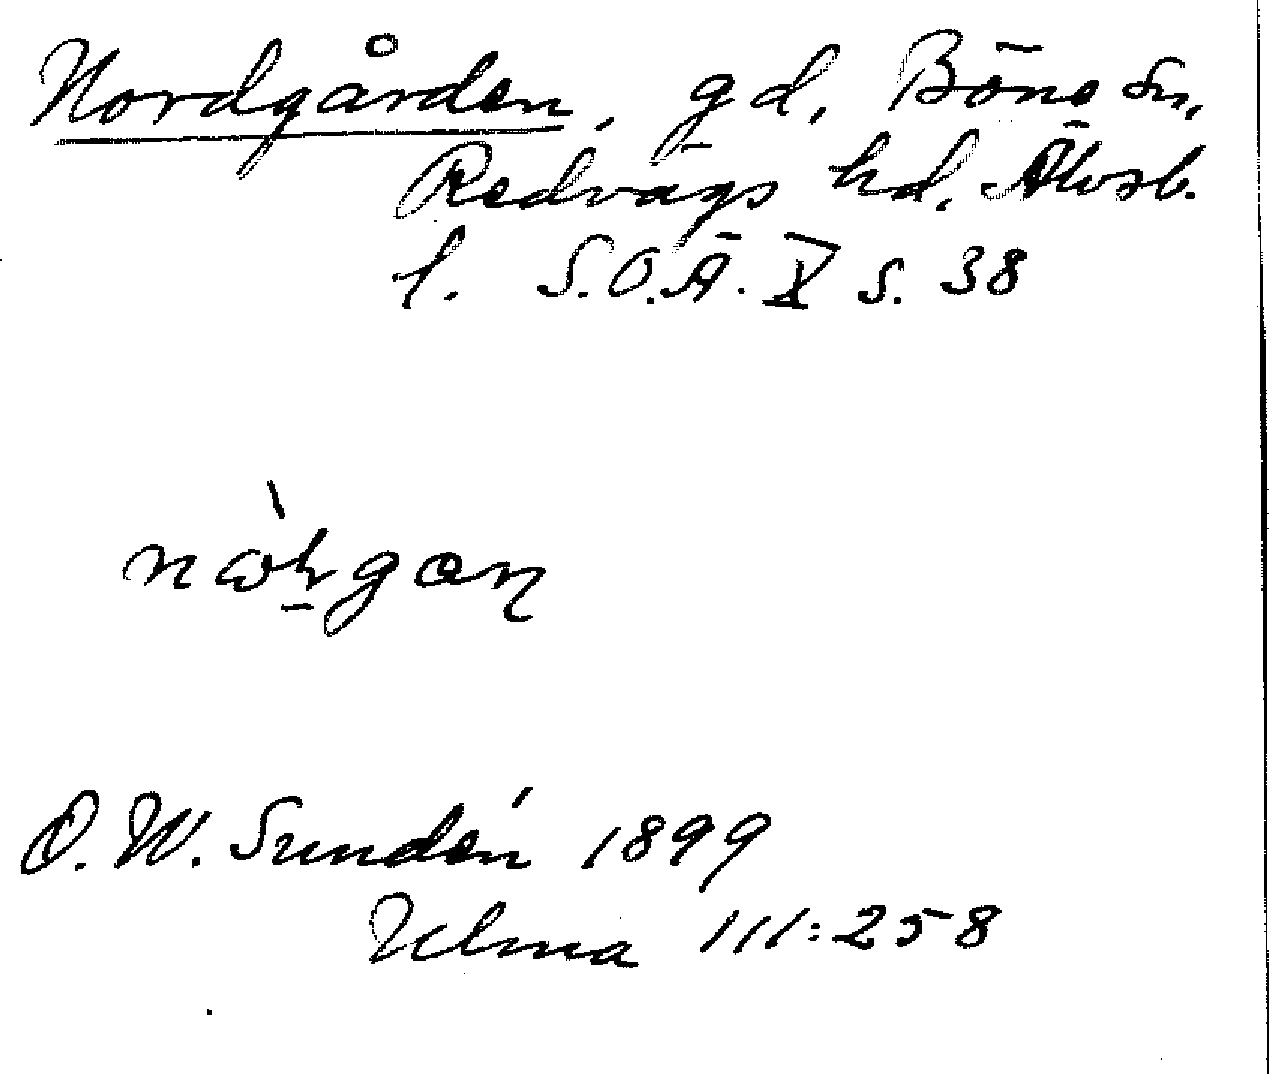 Nordgården, gd, Böne sn,
Redvägs hd, Älvsb.
l. S.O.Ä. X s. 38
O. W. Sundén 1899
Ulma 111:258